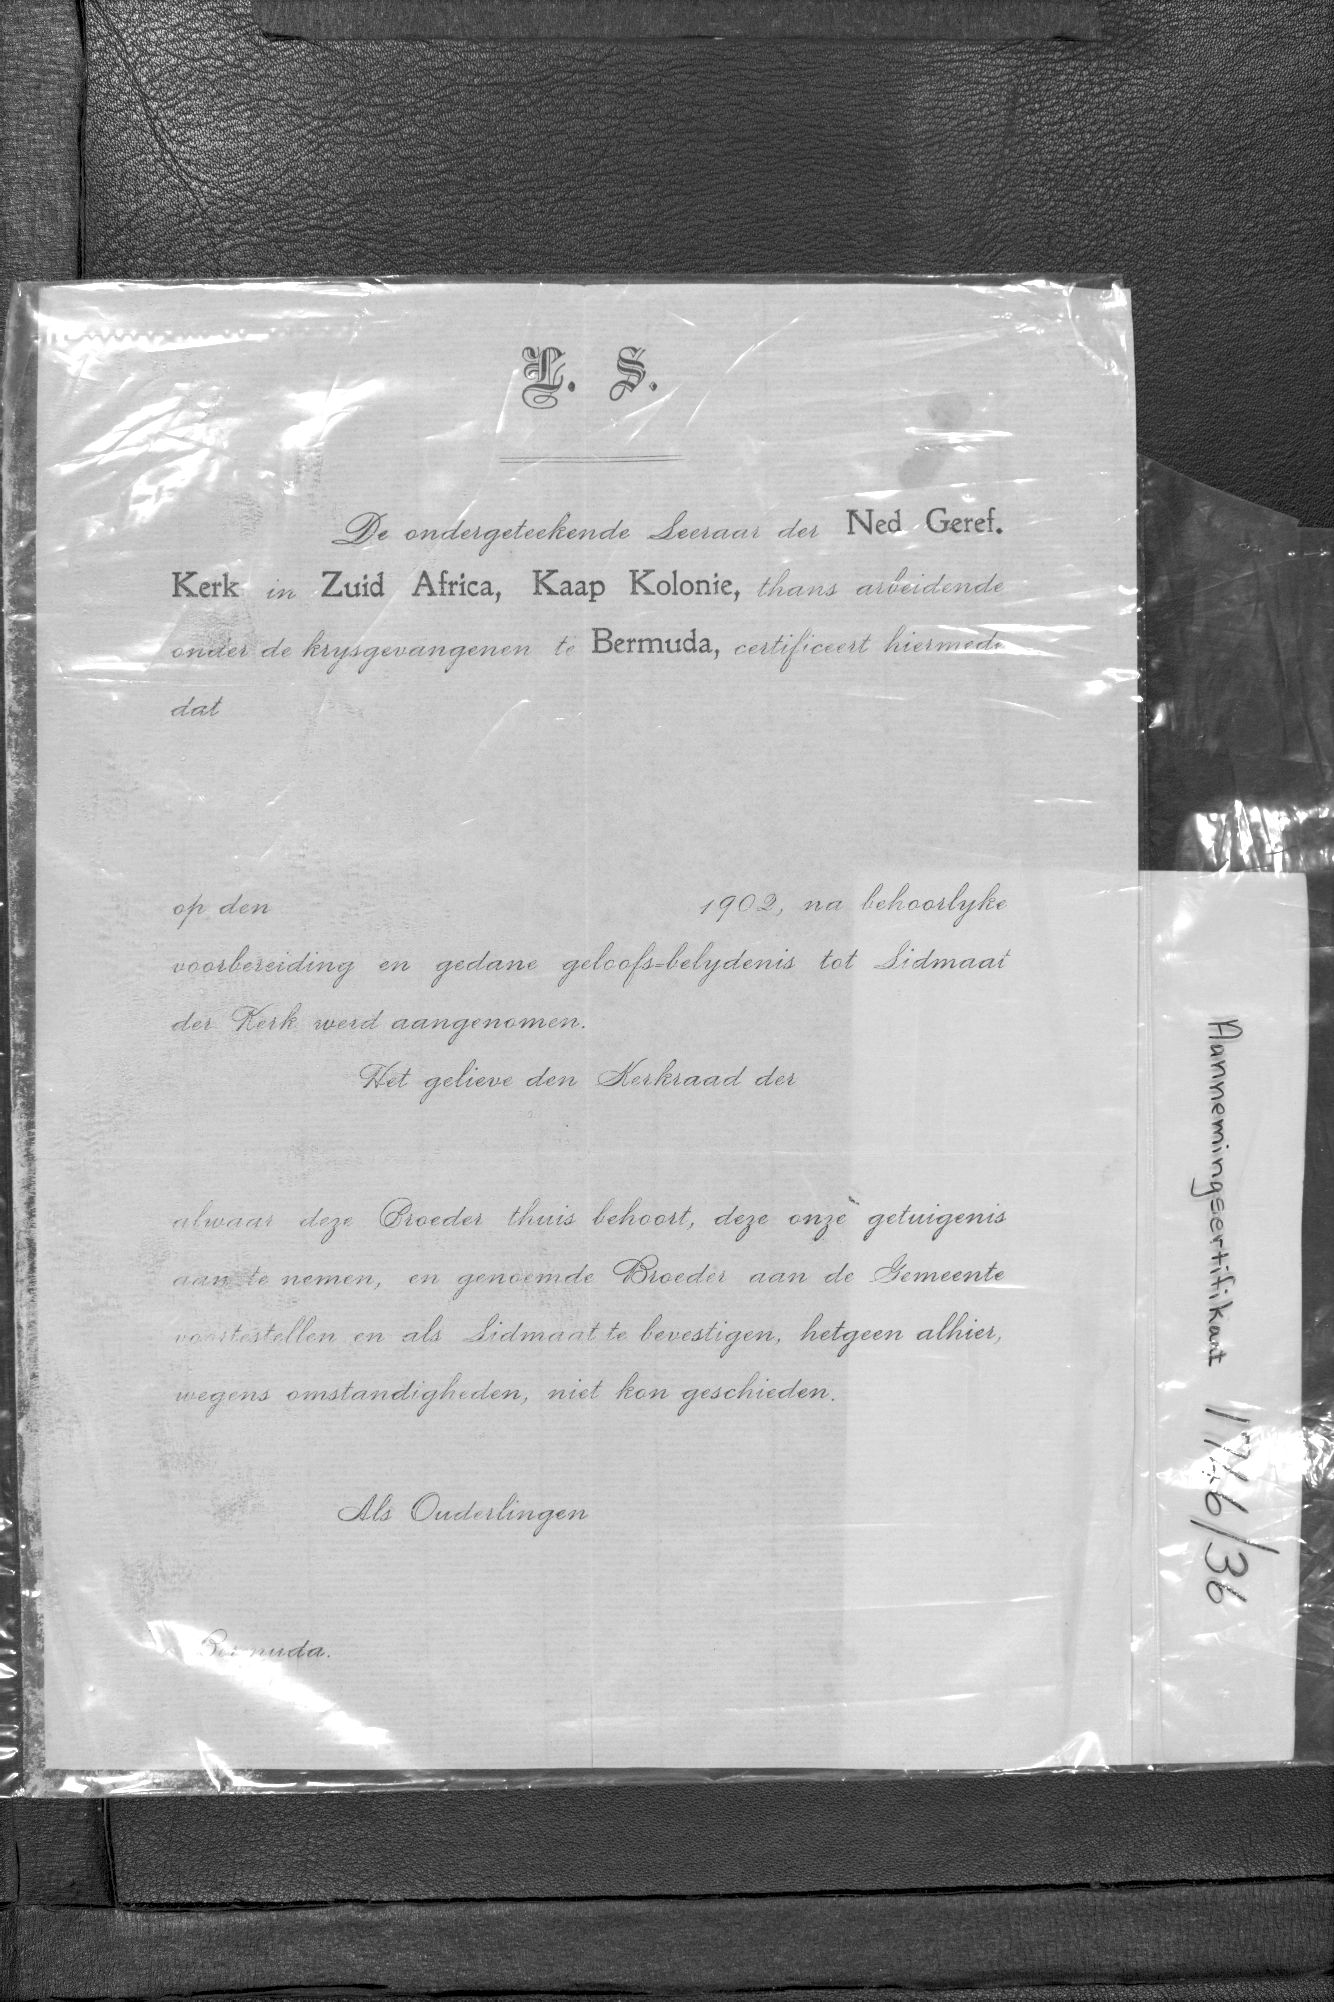 L. S.
De ondergeteekende Leeraar der Ned Geref.
Kerk in Zuid Africa, Kaap Kolonie, thans arbeidende
onder de krysgevangenen te Bermuda, certificeert hiermede
dat
op den 1902, na behoorlyke
voorbereiding en gedane geloofs=belydenis tot Lidmaat
der Kerk werd aangenomen.
Het gelieve den Kerkraad der
alwaar deze Broeder thuis behoort, deze onze getuigenis
aan te nemen, en genoemde Broeder aan de Gemeente
voortestellen en als Lidmaat te bevestigen, hetgeen alhier,
wegens omstandigheden, niet kon geschieden.
Als Ouderlingen
Bermuda.
Aannemingsertifikaat